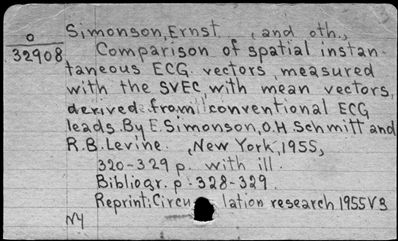 O
32908
Simonson, Ernst , and oth.,
Comparison of spatial instan-
taneous ECG. vectors, measured
with the SVEC, with mean vectors,
derived from conventional ECG
leads. By E. Simonson, O.H Schmitt and
R.B. Levine. , New York, 1955,
320-329 p. with ill.
Bibliogr. p. 328-329.
Reprint: Circu lation research 1955 V3
NY